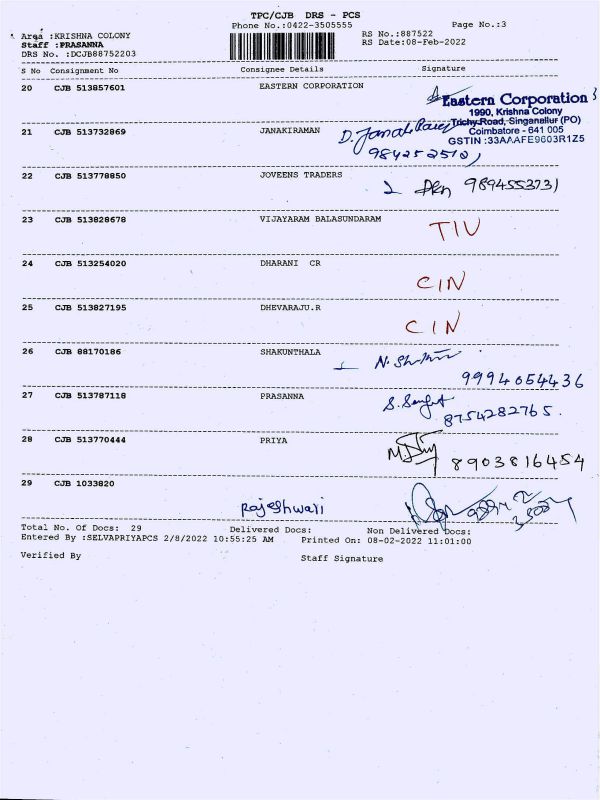 TPC/CJB DRS - PCS
Phone No.:0422-3505555 Page No.:3
Area :KRISHNA COLONY RS No.:887522
Staff :PRASANNA RS Date:08-Feb-2022
DRS No. :DCJB88752203
S No Consignment No Consignee Details Signature
20 CJB 513857601 EASTERN CORPORATION
Eastern Corporation
1990, Krishna Colony
Trichy Road, Singanallur (PO)
Coimbatore - 641 005
GSTIN :33AAAFE9603R1Z5
21 CJB 513732869 JANAKIRAMAN
22 CJB 513778850 JOVEENS TRADERS
9894553731
23 CJB 513828678 VIJAYARAM BALASUNDARAM
TIV
24 CJB 513254020 DHARANI CR
CIN
25 CJB 513827195 DHEVARAJU.R
CIN
26 CJB 88170186 SHAKUNTHALA
9994054436
27 CJB 513787118 PRASANNA
8754282765.
28 CJB 513770444 PRIYA
8903816454
29 CJB 1033820
Rajeshwari
Total No. Of Docs: 29 Delivered Docs: Non Delivered Docs:
Entered By :SELVAPRIYAPCS 2/8/2022 10:55:25 AM Printed On: 08-02-2022 11:01:00
Verified By Staff Signature